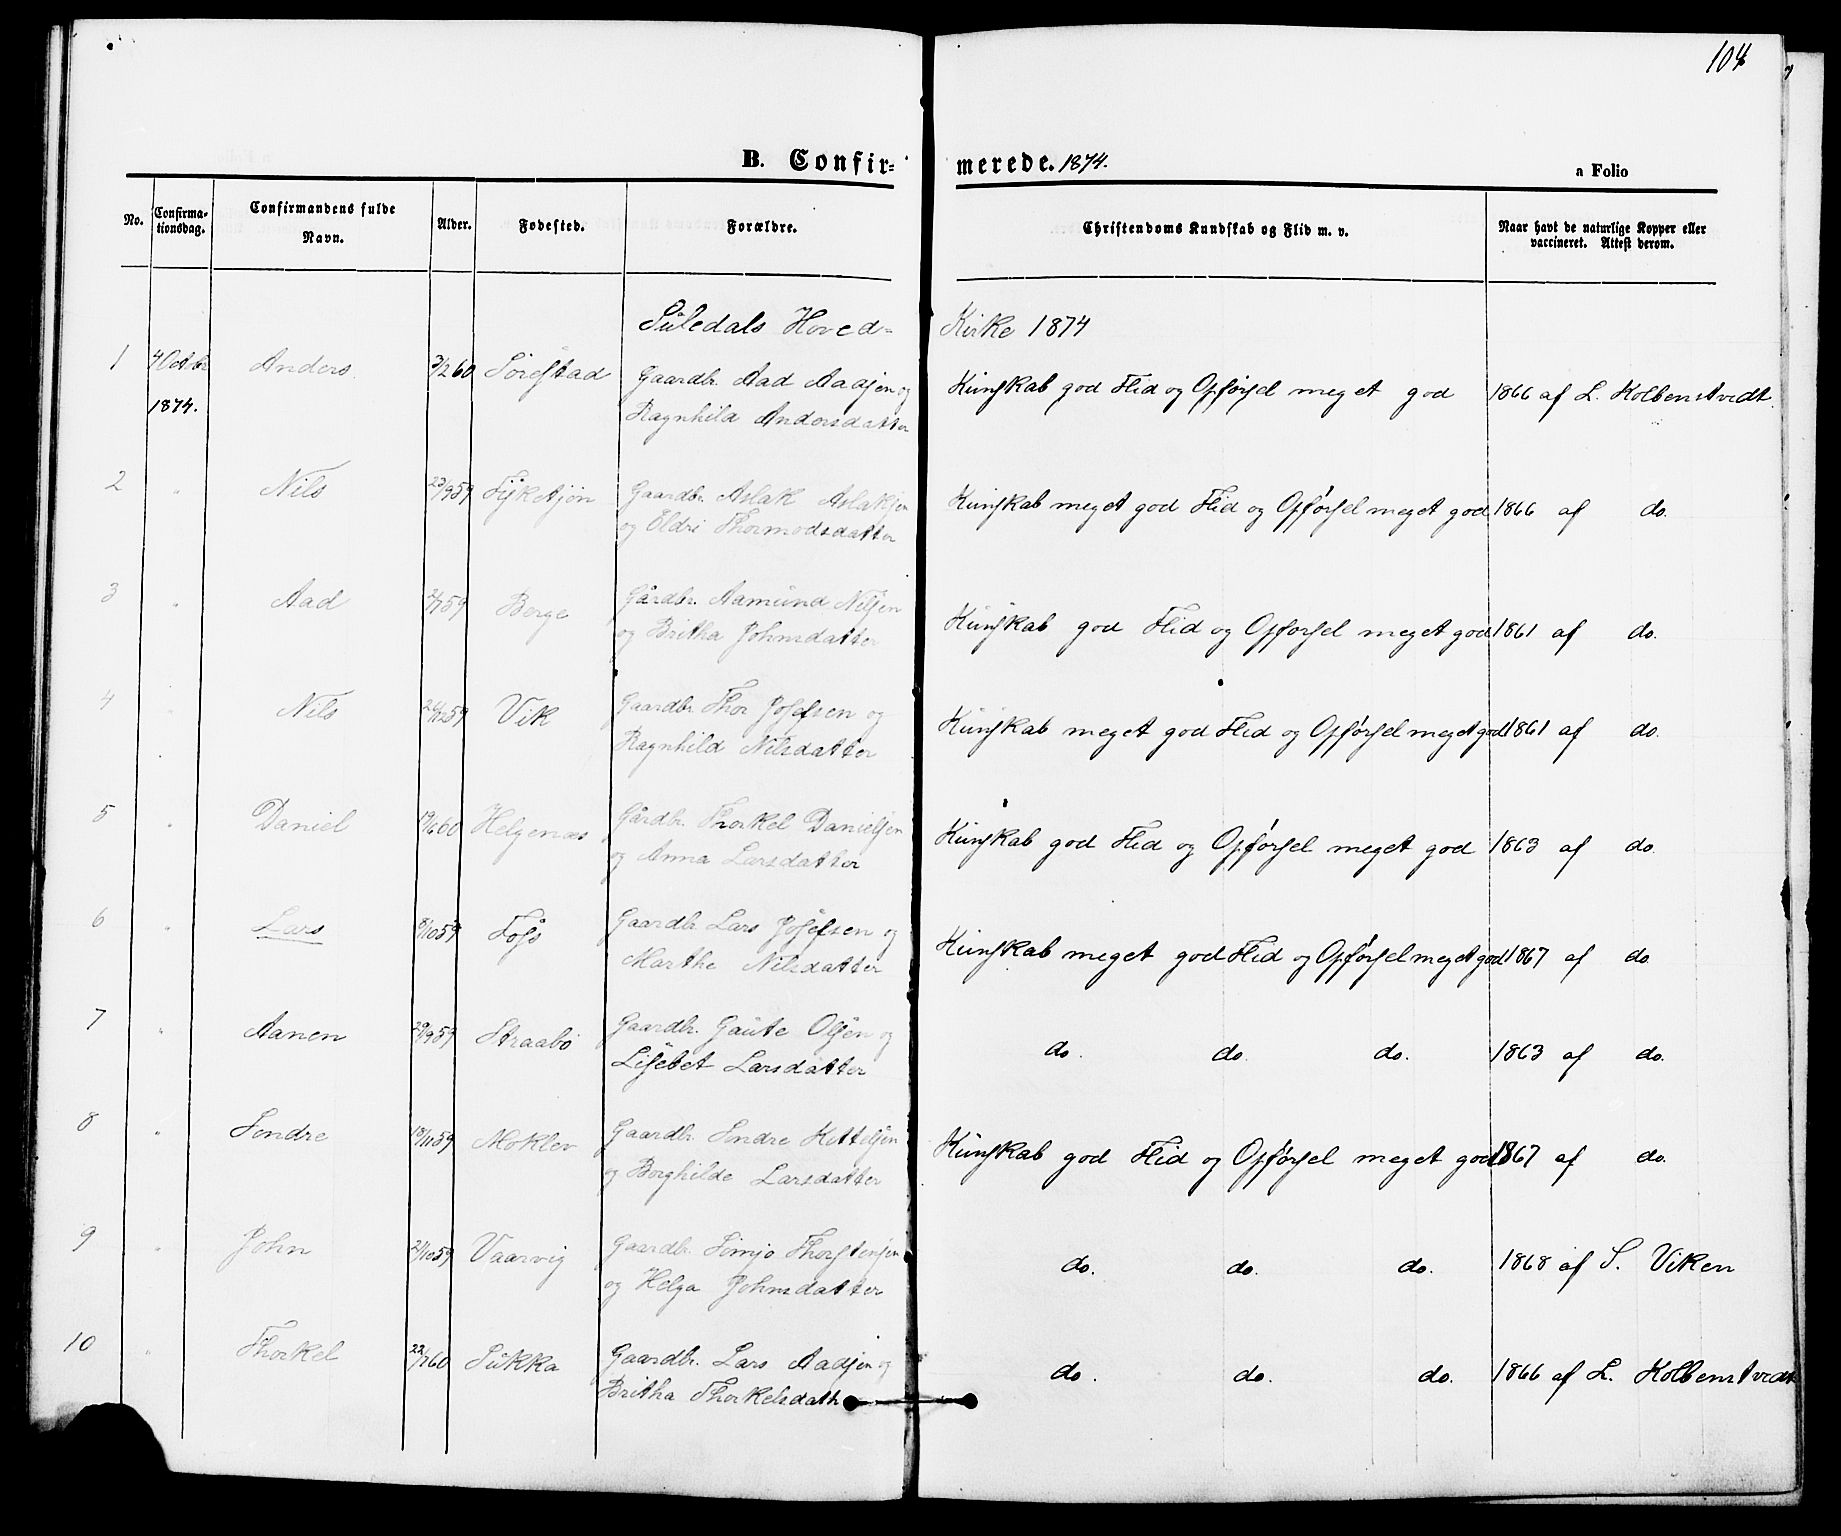 104
B. Confir-
merede. 1874.
a Folio
No.
Confirma-
tionsdag.
Confirmandens fulde
Navn.
Alder.
Fødested.
Forældre.
Christendoms Kundskab og Flid m. v.
Naar havt de naturlige Kopper eller
vaccineret. Attest derom.
Suledals Hoved-
Kirke 1874
1 4 Octbr Anders 3/2 60 Sørestad Gaardbr. Aad Aadsen og Kunskab god Flid og Opførsel meget god 1866 af L. Kolbenstvedt
1874. Ragnhild Andersdatter
2 " Nils 23/9 59 Gaardbr. Aslak Aslaksen Kunskab meget god Flid og Opførsel meget god 1866 af do.
og Eldri Thormodsdatter
3 " Aad 59 Berge Gårdbr. Aamund Nilsen Kunskab god Flid og Opførsel meget god 1861 af do.
og Britha Johnsdatter
4 " Nils 59 Vik Gaardbr. Thor Josefsen og Kunskab meget god Flid og Opførsel meget god 1861 af do.
Ragnhild Nilsdatter
5 " Daniel 19/6 60 Helgenæs Gårdbr. Thorkel Danielsen Kunskab god Flid og Opførsel meget god 1863 af do.
og Anna Larsdatter
6 " Lars 8/10 59 Gaardbr. Lars Josefsen og Kunskab meget god Flid og Opførsel meget god 1867 af do.
Marthe Nilsdatter
7 " Aanen 29/9 59 Straabø Gaardbr. Gaute Olsen og do. do. do. 1863 af do.
Lisebet Larsdatter
8 " Sendre 18/11 59 Moklev Gaardbr. Sendre Kittelsen Kunskab god Flid og Opførsel meget god 1867 af do.
og Borghilde Larsdatter
9 " John 21/10 59 Vaarvig Gaardbr. Simjo Thorstensen do. do. do. 1868 af S. Viken
og Helga Johnsdatter
10 " Thorkel 22/1 60 Sukka Gaardbr. Lars Aadsen og do. do. do. 1866 af L. Kolbenstvedt
Britha Thorkelsdatt